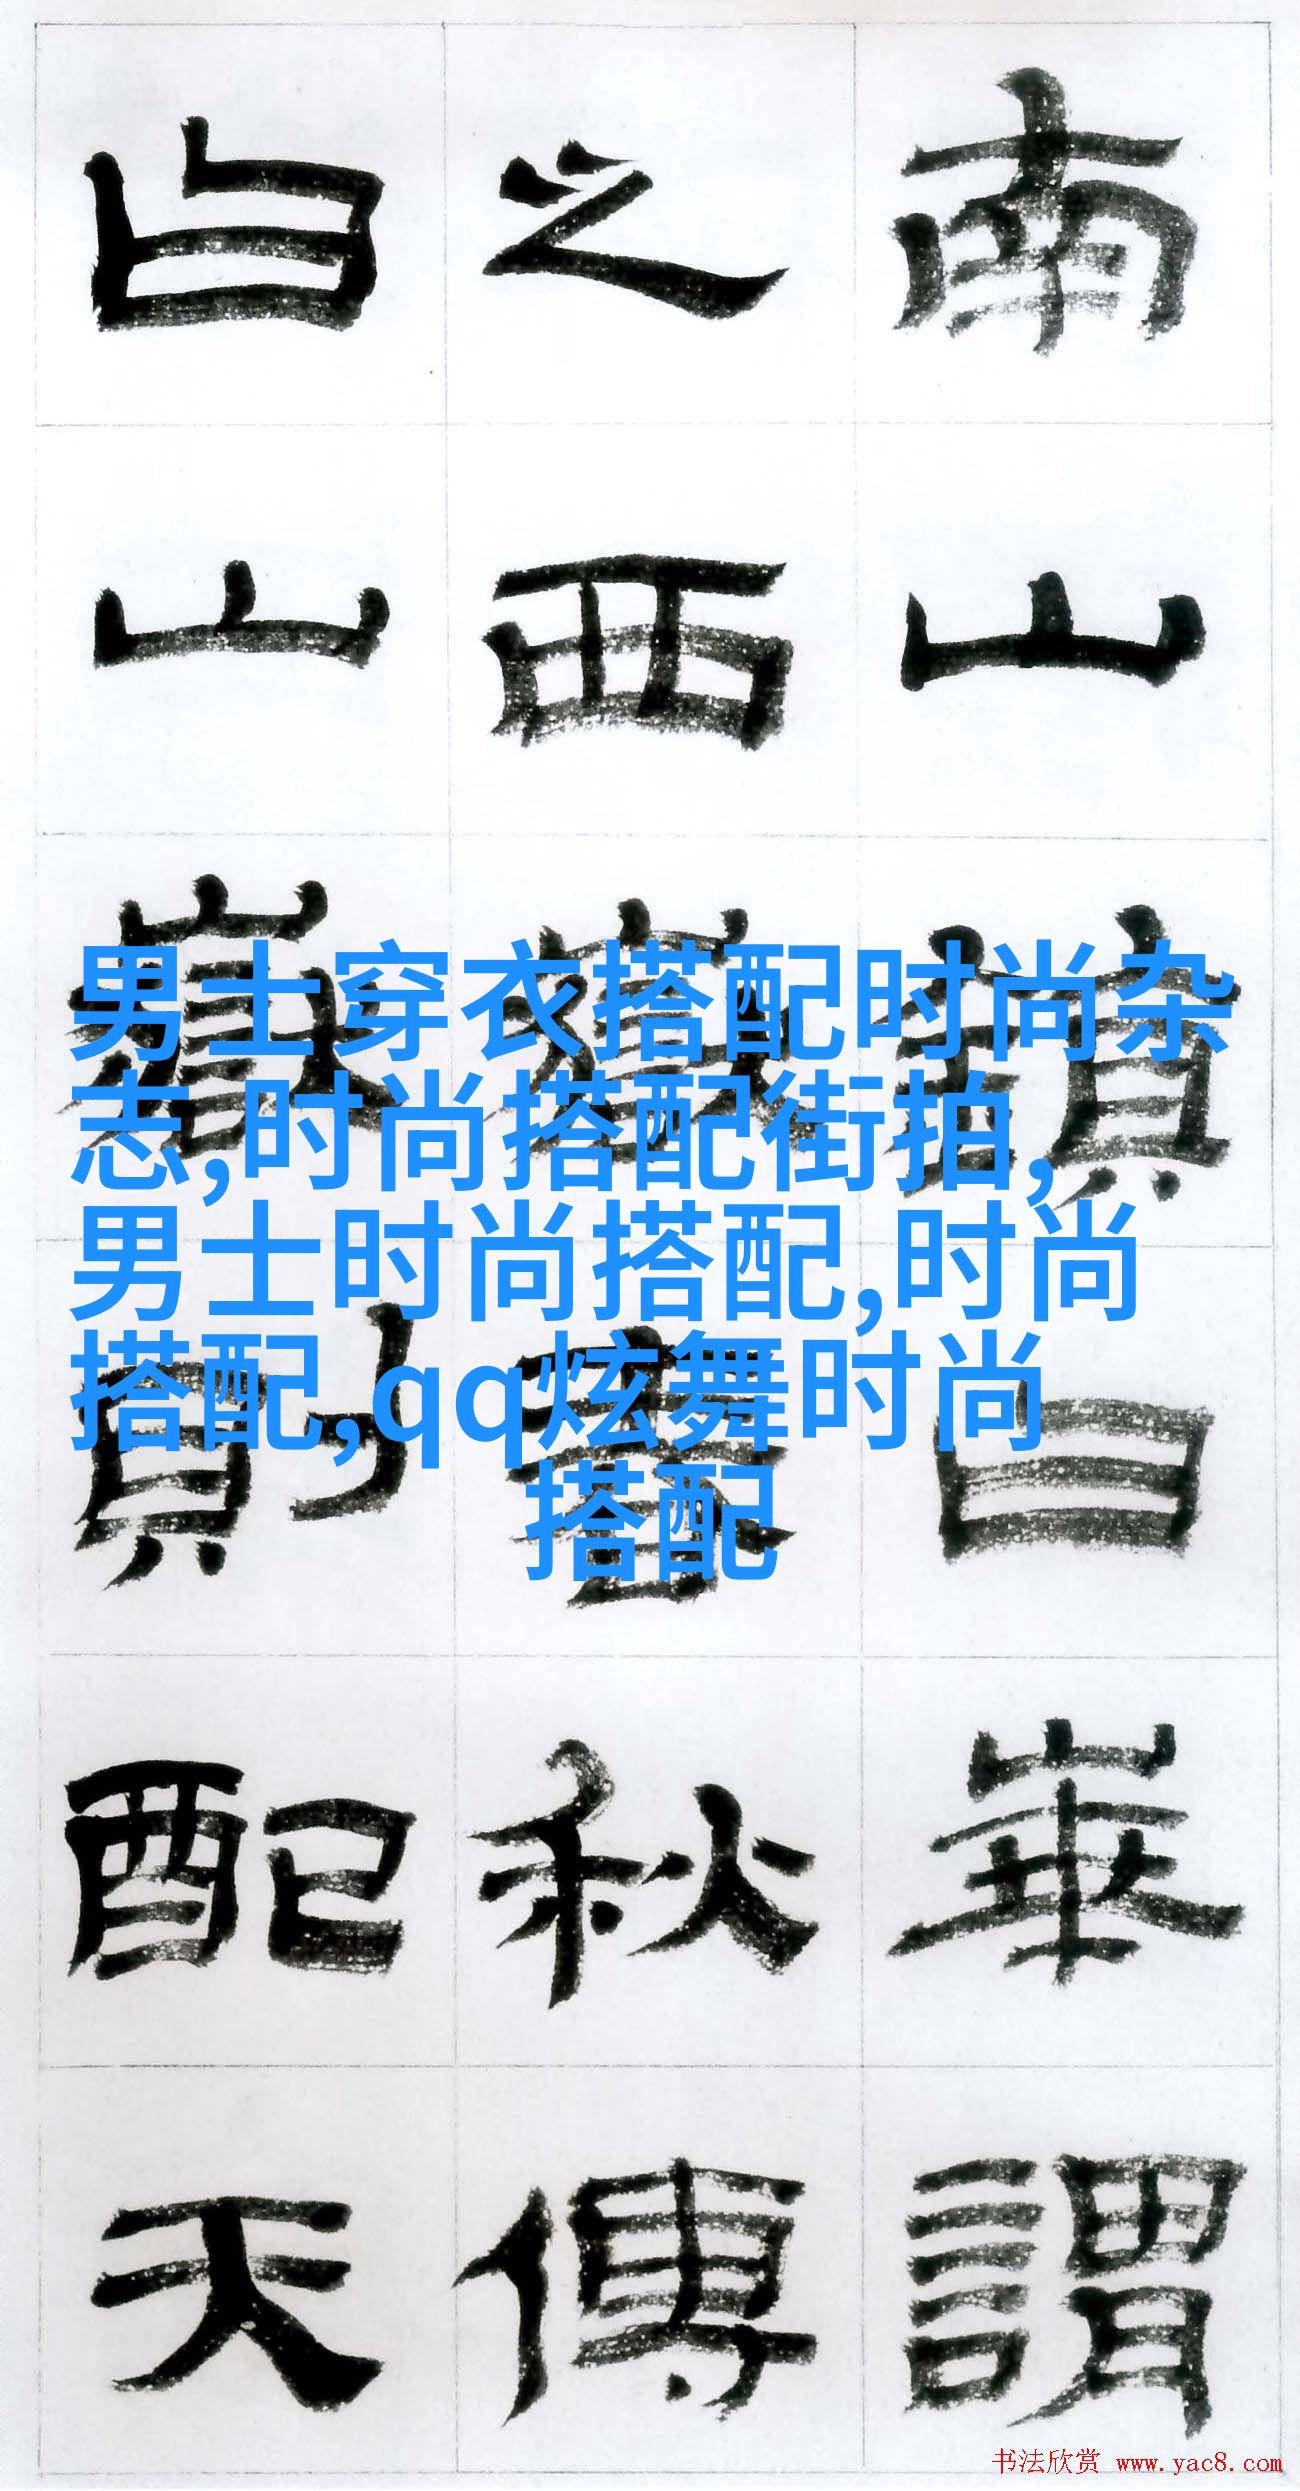 南山鎮曰華謂
之西嶽春秋傳
曰山嶽則配天
男士穿衣搭配时尚杂
志,时尚搭配街拍,
男士时尚搭配,时尚
搭配,qq炫舞时尚
搭配
书法欣赏 www.yac8.com